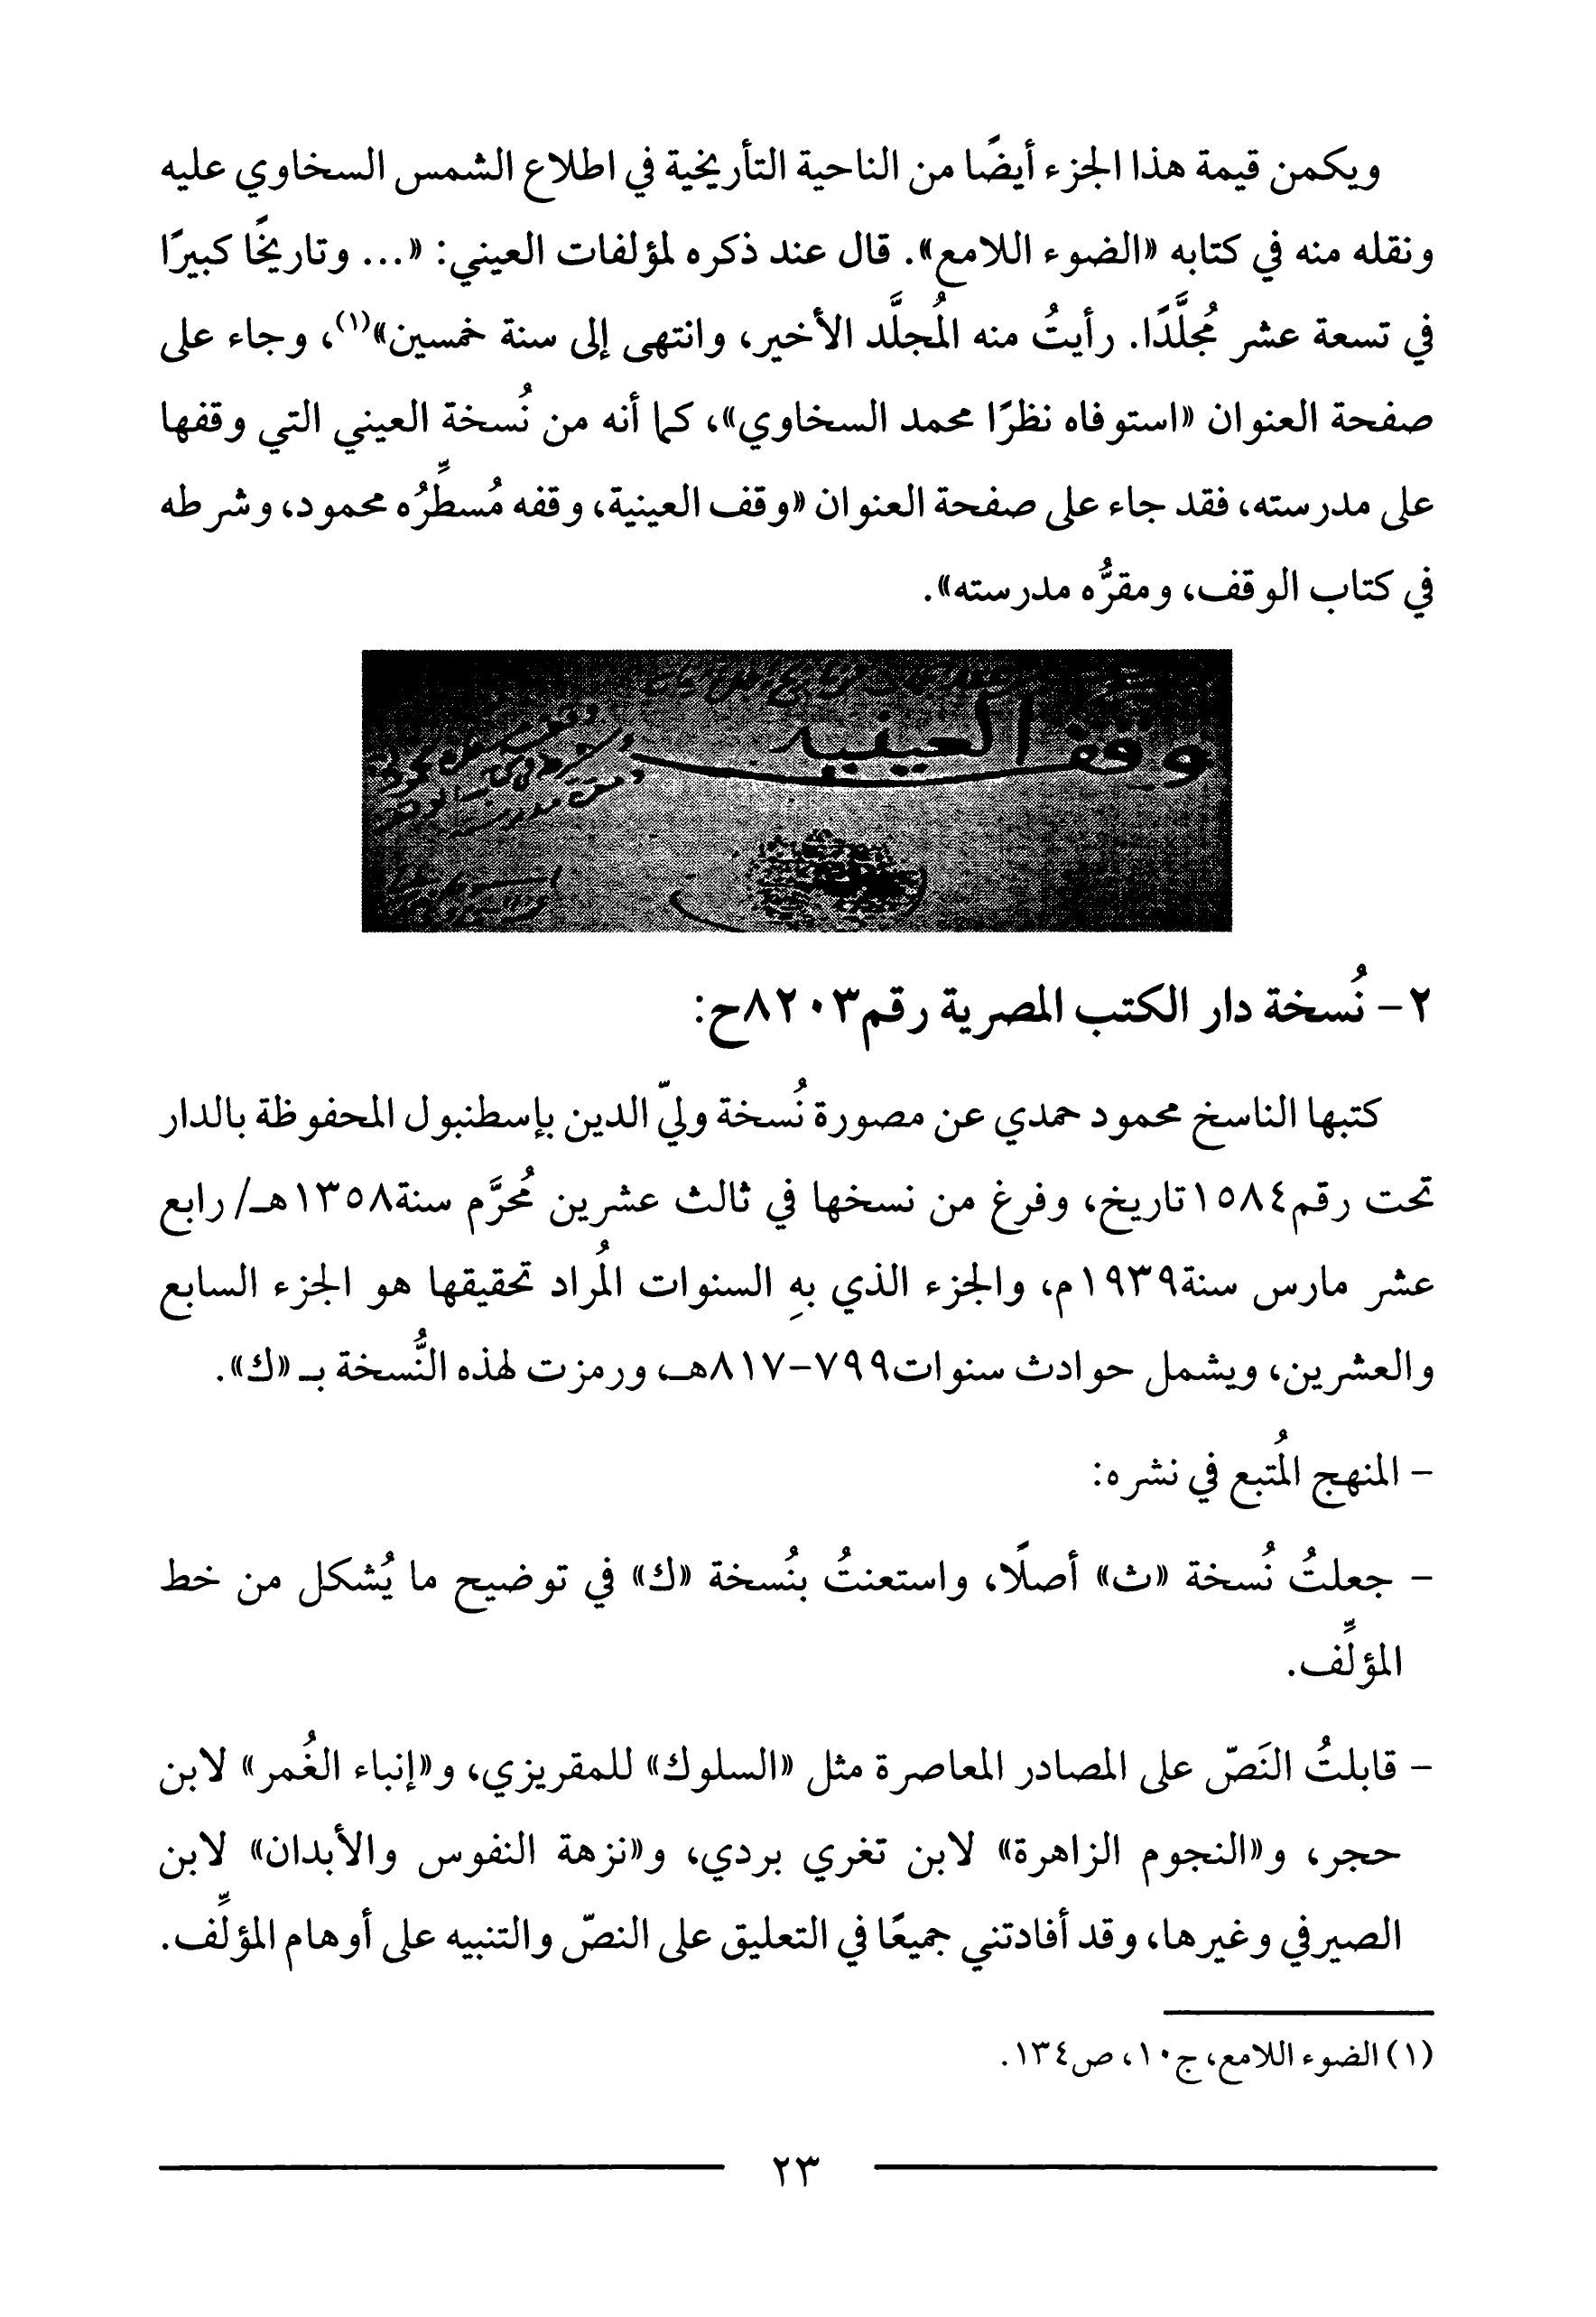 ويكمن قيمة هذا الجزء أيضًا من الناحية التأريخية في اطلاع الشمس السخاوي عليه
ونقله منه في كتابه «الضوء اللامع». قال عند ذكره لمؤلفات العيني: «... وتاريخًا كبيرًا
في تسعة عشر مُجلَّدًا. رأيتُ منه المُجلَّد الأخير، وانتهى إلى سنة خمسين»(١)، وجاء على
صفحة العنوان «استوفاه نظرًا محمد السخاوي»، كما أنه من نُسخة العيني التي وقفها
على مدرسته، فقد جاء على صفحة العنوان «وقف العينية، وقفه مُسطِّرُه محمود، وشرطه
في كتاب الوقف، ومقرُّه مدرسته».
وقف العينية
٢- نُسخة دار الكتب المصرية رقم٨٢٠٣ح:
كتبها الناسخ محمود حمدي عن مصورة نُسخة وليّ الدين بإسطنبول المحفوظة بالدار
تحت رقم١٥٨٤تاريخ، وفرغ من نسخها في ثالث عشرين مُحرَّم سنة١٣٥٨هـ/ رابع
عشر مارس سنة١٩٣٩م، والجزء الذي بهِ السنوات المُراد تحقيقها هو الجزء السابع
والعشرين، ويشمل حوادث سنوات٧٩٩-٨١٧هـ، ورمزت لهذه النُّسخة بـ «ك».
- المنهج المُتبع في نشره:
- جعلتُ نُسخة «ث» أصلًا، واستعنتُ بنُسخة «ك» في توضيح ما يُشكل من خط
المؤلِّف.
- قابلتُ النَصّ على المصادر المعاصرة مثل «السلوك» للمقريزي، و«إنباء الغُمر» لابن
حجر، و«النجوم الزاهرة» لابن تغري بردي، و«نزهة النفوس والأبدان» لابن
الصيرفي وغيرها، وقد أفادتني جميعًا في التعليق على النصّ والتنبيه على أوهام المؤلِّف.
(١) الضوء اللامع، ج١٠، ص١٣٤.
٢٣